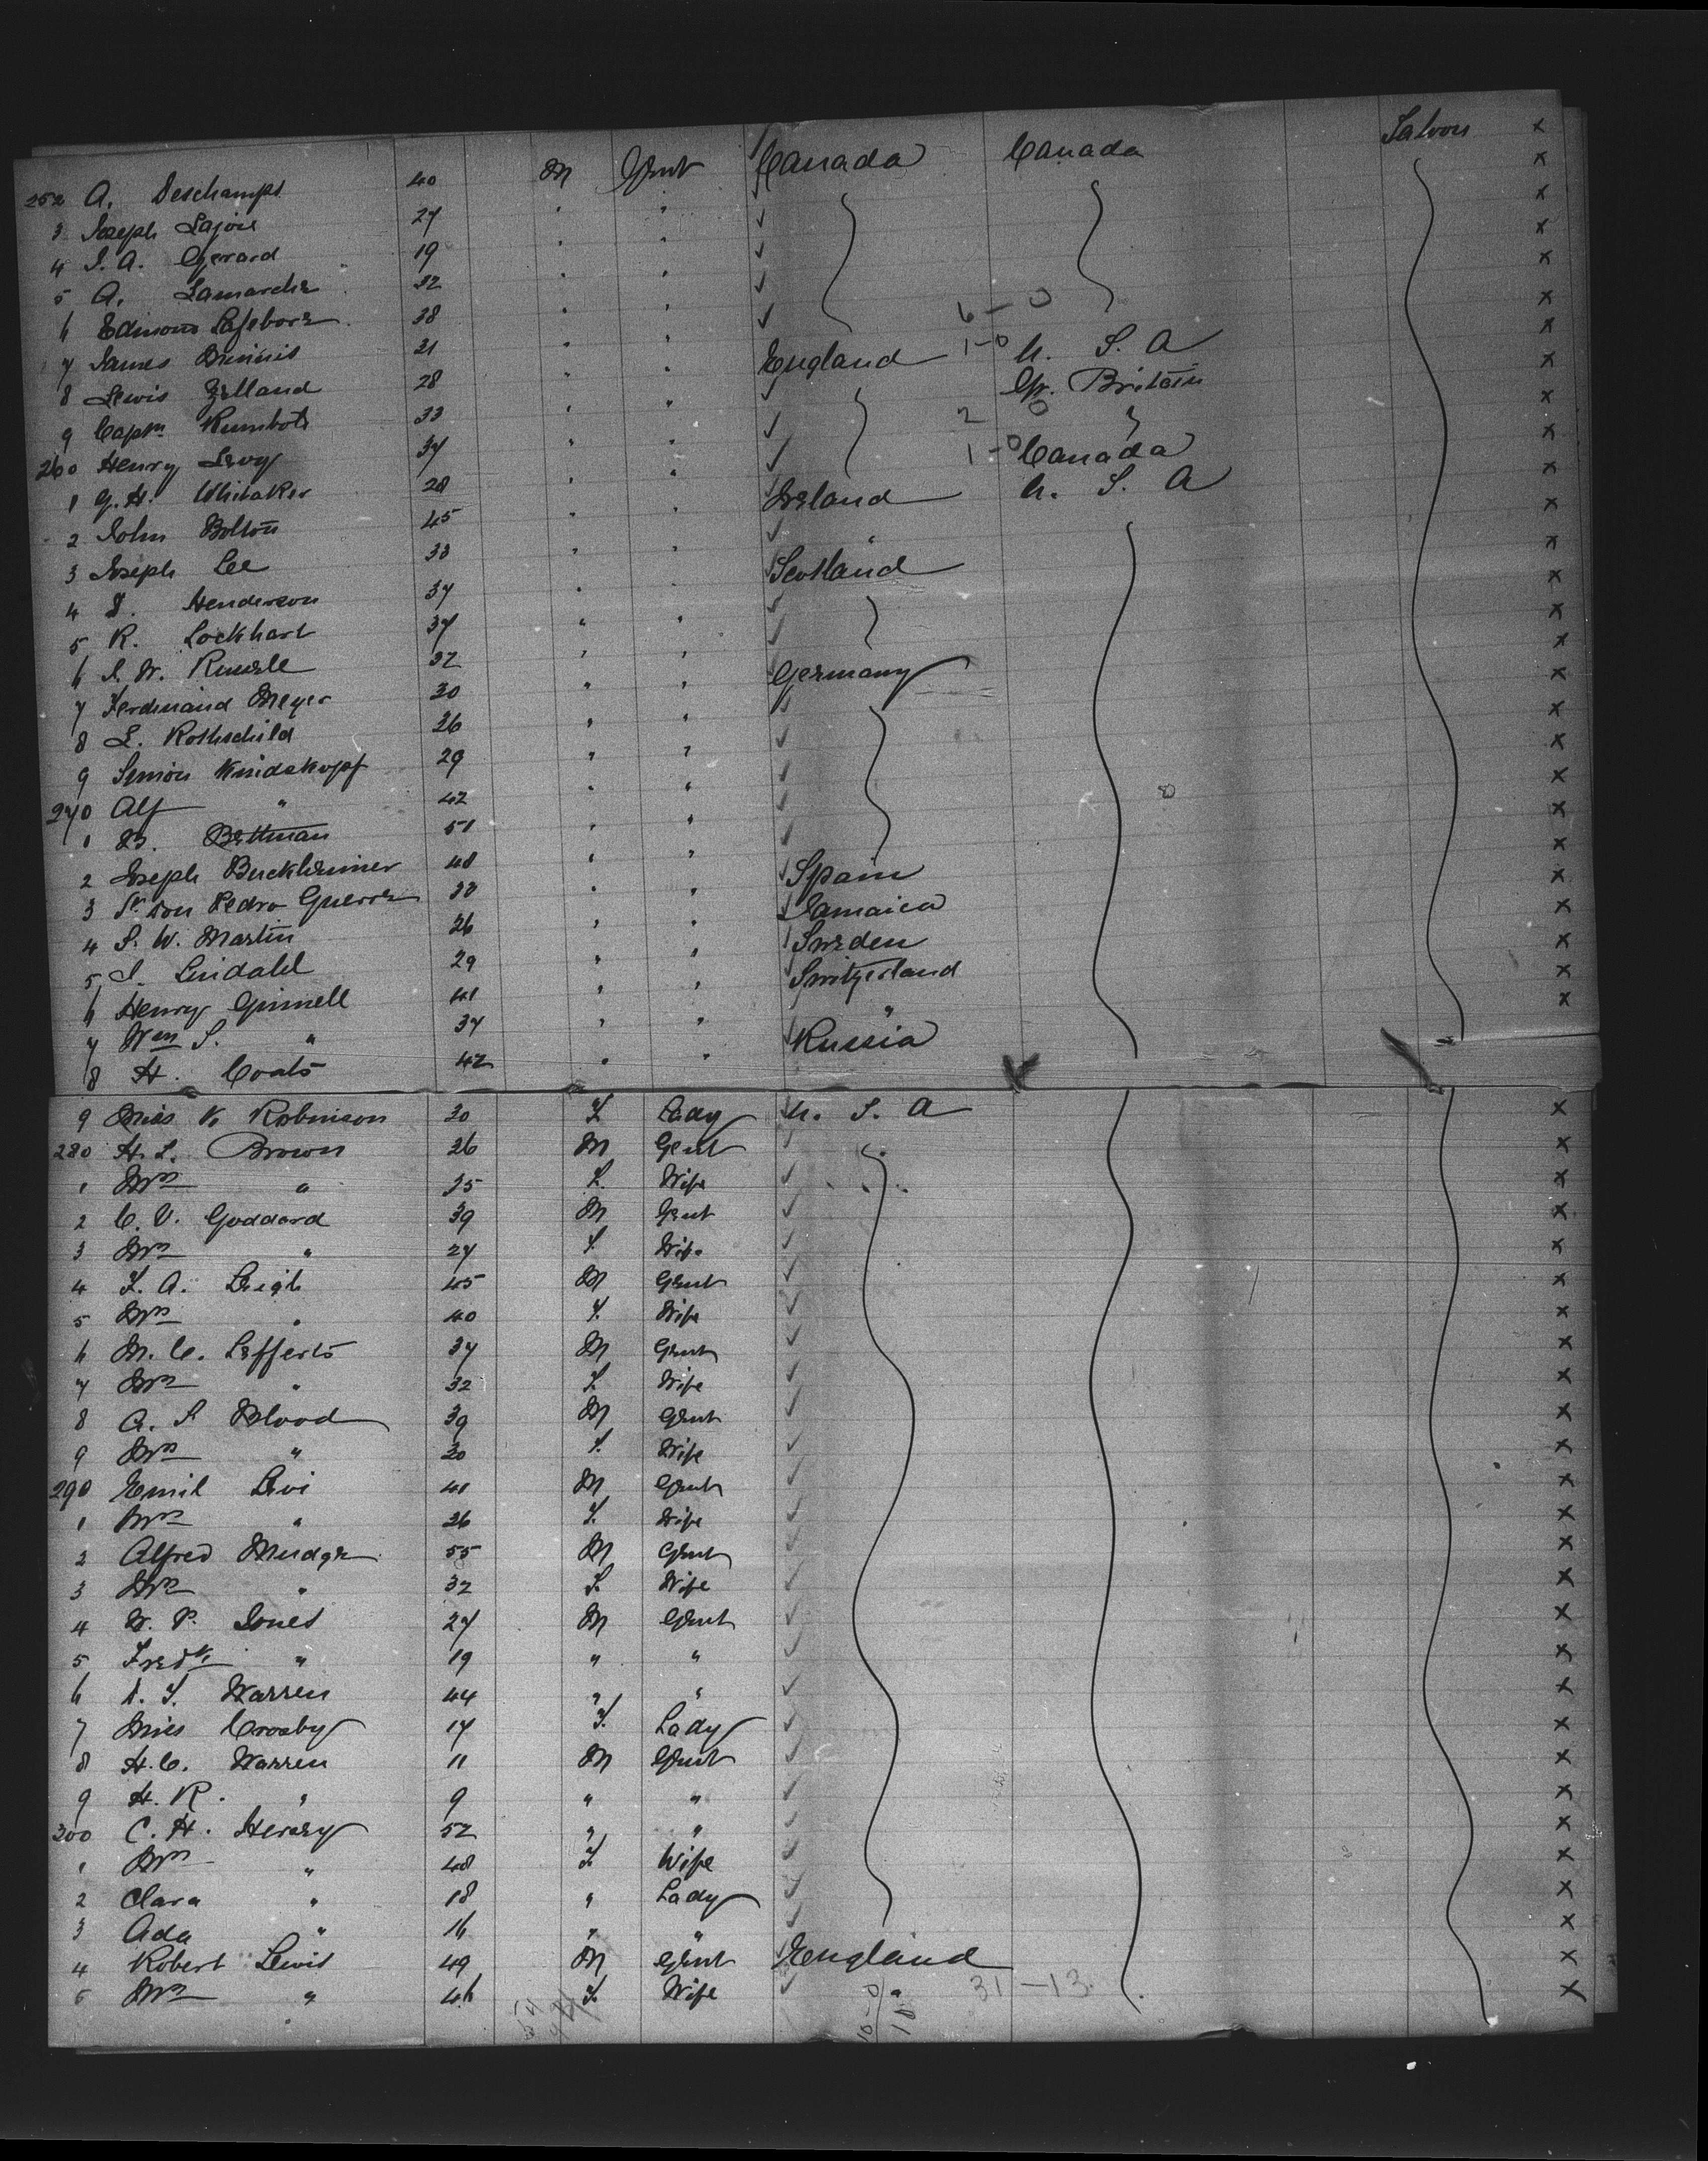 252 A. Deschamps 40 M Gent Canada Canada Saloon x
3 Joseph Lajoie 27 " " x
4 J. A. Gerard 19 " " x
5 A. Lamarche 32 " " x
6 Edmond Lefebore 38 " " 6-0 x
7 James Dminis 21 " " England 1-0 U. S. A x
8 Lewis Zelland 28 " " Gr. Britain x
9 Captn Rumbots 33 " " 2 0 " x
260 Henry Levy 37 " " 1-0 Canada x
1 G. H. Whitaker 28 " " Ireland U. S. A x
2 John Bolton 45 " " " x
3 Joseph Lee 33 " " Scotland x
4 D. Henderson 37 " x
5 R. Lockhart 37 " " x
6 J. W. 32 " " Germany x
7 Ferdinand Meyer 30 " " x
8 L. Rothschild 26 " " x
9 Simon Kindskopf 29 " " x
270 Alf " 42 " " x
1 B. Bettman 51 " " x
2 Joseph Buckheimer 48 " " Spain x
3 Sr Don Pedro Guerra 38 " " Jamaica x
4 S. W. Martin 26 " " Sweden x
5 J. Lindahl 29 " " Switzerland x
6 Henry Grinnell 41 " " " x
7 Wm S. " 37 " " Russia x
8 H. Coats 42 " "
9 Miss K Robinson 30 F. Lady U. S. A x
280 H. L. Brown 26 M Gent x
1 Mrs " 25 F. Wife x
2 C. V. Goddard 39 M Gent x
3 Mrs " 27 F. Wife x
4 F. A. Leigh 45 M Gent x
5 Mrs " 40 F. Wife x
6 M. C. Lefferts 37 M Gent x
7 Mrs " 32 F. Wife x
8 A. S Blood 39 M Gent x
9 Mrs " 30 F. Wife x
290 Emil Levi 41 M Gent x
1 Mrs " 26 F. Wife x
2 Alfred Mudge 55 M Gent x
3 Mrs " 32 F. Wife x
4 W. P. Jones 27 M Gent x
5 Fredk " 19 " " x
6 S. F. Warren 44 " " x
7 Miss Crosby 17 F. Lady x
8 H. C. Warren 11 M Gent x
9 H. R. " 9 " " x
300 C. H. Hersey 52 " " x
1 Mrs " 48 F. Wife x
2 Clara " 18 " Lady x
3 Ada " 16 " " x
4 Robert Lewis 49 M Gent England x
5 Mrs " 46 F. Wife " 31-13. x
10-0
10